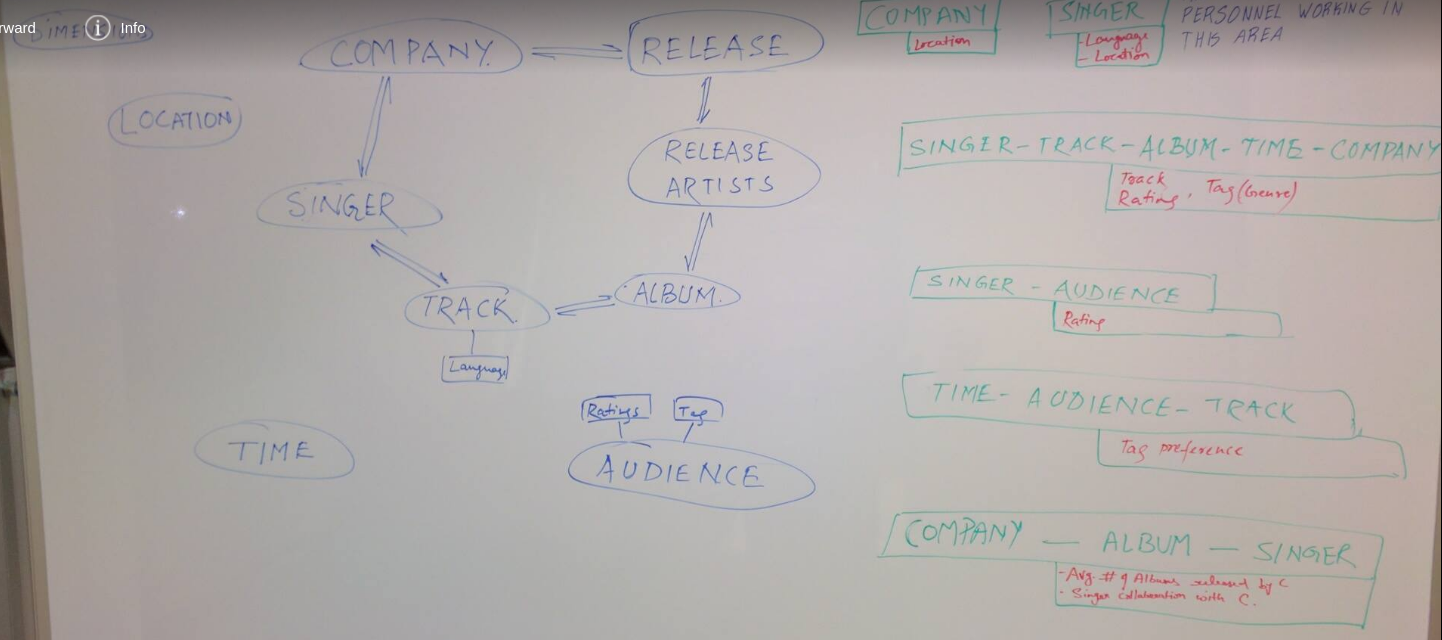 rward
Info
DIMENSIONS
COMPANY
RELEASE
LOCATION
RELEASE
ARTISTS
SINGER
TRACK
ALBUM
Language
Ratings
Tag
TIME
AUDIENCE
COMPANY
Location
SINGER
- Language
- Location
PERSONNEL WORKING IN
THIS AREA
SINGER - TRACK - ALBUM - TIME - COMPANY
Track
Rating, Tag (Genre)
SINGER - AUDIENCE
Rating
TIME - AUDIENCE - TRACK
Tag preference
COMPANY — ALBUM — SINGER
- Avg. # of Albums released by C
- Singer collaboration with C.